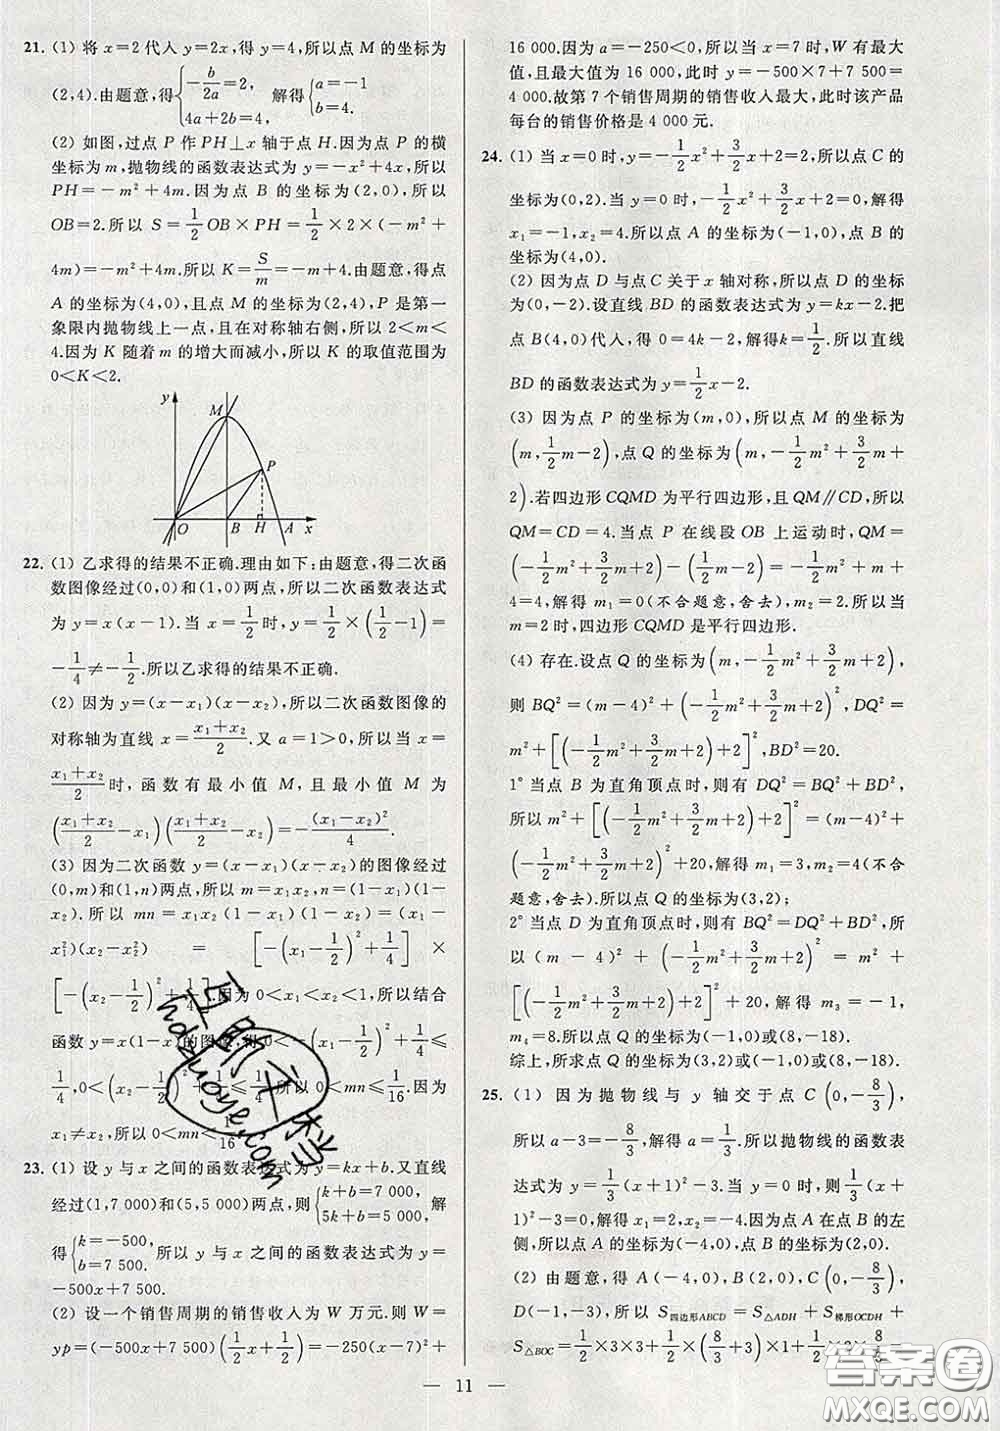 21. (1) 将 x=2 代入 y=2x,得 y=4,所以点 M 的坐标为
(2,4).由题意,得{-b/2a=2, 4a+2b=4, 解得{a=-1 b=4.
(2) 如图,过点 P 作 PH⊥x 轴于点 H.因为点 P 的横
坐标为 m,抛物线的函数表达式为 y=-x²+4x,所以
PH=-m²+4m.因为点 B 的坐标为(2,0),所以
OB=2.所以 S=1/2 OB×PH=1/2×2×(-m²+
4m)=-m²+4m.所以 K=S/m=-m+4.由题意,得点
A 的坐标为(4,0),且点 M 的坐标为(2,4),P 是第一
象限内抛物线上一点,且在对称轴右侧,所以 2<m<
4.因为 K 随着 m 的增大而减小,所以 K 的取值范围为
0<K<2.
y
M
P
O B H A x
22. (1) 乙求得的结果不正确.理由如下:由题意,得二次函
数图像经过(0,0)和(1,0)两点,所以二次函数表达式
为 y=x(x-1).当 x=1/2时,y=1/2×(1/2-1)=
-1/4≠-1/2.所以乙求得的结果不正确.
(2) 因为 y=(x-x₁)(x-x₂),所以二次函数图像的
对称轴为直线 x=(x₁+x₂)/2.又 a=1>0,所以当 x=
(x₁+x₂)/2时,函数有最小值 M,且最小值 M 为
((x₁+x₂)/2-x₁)((x₁+x₂)/2-x₂)=-(x₁-x₂)²/4.
(3) 因为二次函数 y=(x-x₁)(x-x₂)的图像经过
(0,m)和(1,n)两点,所以 m=x₁x₂,n=(1-x₁)(1-
x₂).所以 mn=x₁x₂(1-x₁)(1-x₂)=(x₁-
x₁²)(x₂-x₂²) = [-(x₁-1/2)²+1/4] ×
[-(x₂-1/2)²+1/4].因为 0<x₁<x₂<1,所以结合
函数 y=x(1-x)的图像,得 0<-(x₁-1/2)²+1/4≤
1/4,0<-(x₂-1/2)²+1/4≤1/4.所以 0<mn≤1/16.因为
x₁≠x₂,所以 0<mn<1/16.
23. (1) 设 y 与 x 之间的函数表达式为 y=kx+b.又直线
经过(1,7 000)和(5,5 000)两点,则{k+b=7 000, 5k+b=5 000, 解
得{k=-500, b=7 500. 所以 y 与 x 之间的函数表达式为 y=
-500x+7 500.
(2) 设一个销售周期的销售收入为 W 万元.则 W=
yp=(-500x+7 500)(1/2x+1/2)=-250(x-7)²+
16 000.因为 a=-250<0,所以当 x=7 时,W 有最大
值,且最大值为 16 000,此时 y=-500×7+7 500=
4 000.故第 7 个销售周期的销售收入最大,此时该产品
每台的销售价格是 4 000 元.
24. (1) 当 x=0时,y=-1/2x²+3/2x+2=2,所以点 C 的
坐标为(0,2).当 y=0 时,-1/2x²+3/2x+2=0,解得
x₁=-1,x₂=4.所以点 A 的坐标为(-1,0),点 B 的
坐标为(4,0).
(2) 因为点 D 与点C 关于 x 轴对称,所以点 D 的坐标
为(0,-2).设直线 BD 的函数表达式为 y=kx-2.把
点 B(4,0)代入,得 0=4k-2,解得k=1/2.所以直线
BD 的函数表达式为 y=1/2x-2.
(3) 因为点 P 的坐标为(m,0),所以点 M 的坐标为
(m,1/2m-2),点 Q 的坐标为(m,-1/2m²+3/2m+
2).若四边形 CQMD 为平行四边形,且 QM∥CD,所以
QM=CD=4.当点 P 在线段 OB 上运动时,QM=
(-1/2m²+3/2m+2)-(1/2m-2)=-1/2m²+m+
4=4,解得 m₁=0(不合题意,舍去),m₂=2.所以当
m=2时,四边形 CQMD 是平行四边形.
(4) 存在.设点 Q 的坐标为(m,-1/2m²+3/2m+2),
则 BQ²=(m-4)²+(-1/2m²+3/2m+2)²,DQ²=
m²+[(-1/2m²+3/2m+2)+2]²,BD²=20.
1° 当点 B 为直角顶点时,则有 DQ²=BQ²+BD²,
所以 m²+[(-1/2m²+3/2m+2)+2]²=(m-4)²+
(-1/2m²+3/2m+2)²+20,解得 m₁=3,m₂=4(不合
题意,舍去).所以点 Q 的坐标为(3,2);
2° 当点 D 为直角顶点时,则有 BQ²=DQ²+BD²,所
以(m-4)²+(-1/2m²+3/2m+2)²=m²+
[(-1/2m²+3/2m+2)+2]²+20,解得 m₃=-1,
m₄=8.所以点 Q 的坐标为(-1,0)或(8,-18).
综上,所求点 Q 的坐标为(3,2)或(-1,0)或(8,-18).
25. (1) 因为抛物线与 y 轴交于点 C(0,-8/3),
所以 a-3=-8/3,解得 a=1/3.所以抛物线的函数表
达式为 y=1/3(x+1)²-3.当 y=0时,则有1/3(x+
1)²-3=0,解得 x₁=2,x₂=-4.因为点 A在点 B的左
侧,所以点 A 的坐标为(-4,0),点 B 的坐标为(2,0).
(2) 由题意,得 A(-4,0),B(2,0),C(0,-8/3),
D(-1,-3),所以 S四边形ABCD=S△ADH+S梯形OCDH+
S△BOC=1/2×3×3+1/2×(8/3+3)×1+1/2×2×8/3
— 11 —
互动文档
hdzuoye.com
答案圈
MXQE.COM